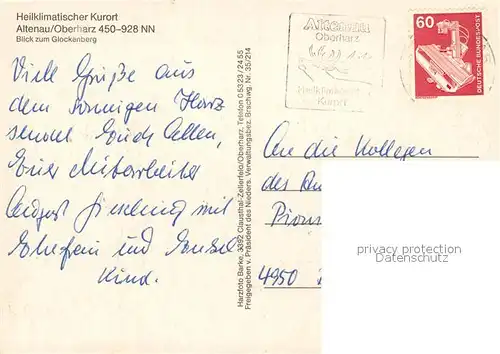 Heilklimatischer Kurort
Altenau/Oberharz 450–928 NN
Blick zum Glockenberg
Viele Grüße aus
dem sonnigen Harz
sendet Euch Allen,
Euer Mitarbeiter
August mit
Ehefrau und Enkel
Kind.
Harzfoto Barke, 3392 Clausthal-Zellerfeld/Oberharz, Telefon 0 53 23/24 55
Freigegeben v. Präsident des Nieders. Verwaltungsbez. Brschwg. Nr. 35/214
Altenau
Oberharz
Heilklimatischer
Kurort
60
DEUTSCHE BUNDESPOST
An die Kollegen
des
4950
privacy protection
DARABANTH